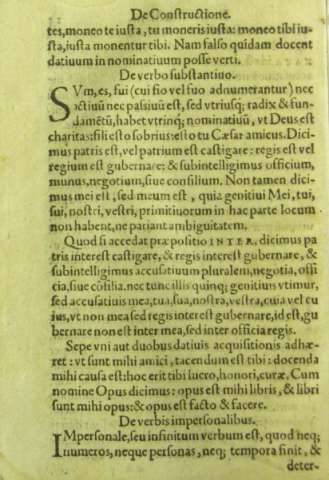 De Constructione.
tes, moneo te iusta, tu moneris iusta: moneo tibi iu-
sta, iusta monentur tibi. Nam falso quidam docent
datiuum in nominatiuum posse verti.
De verbo substantiuo.
SVm, es, fui (cui fio vel fuo adnumerantur) nec
actiuũ nec passiuũ est, sed vtriusq; radix & fun-
damẽtũ, habet vtrinq; nominatiuũ, vt Deus est
charitas: fili esto sobrius: esto tu Cæsar amicus. Dici-
mus patris est, vel patrium est castigare: regis est vel
regium est gubernare: & subintelligimus officium,
munus, negotium, siue consilium. Non tamen dici-
mus mei est, sed meum est, quia genitiui Mei, tui,
sui, nostri, vestri, primitiuorum in hac parte locum
non habent, ne pariant ambiguitatem.
Quod si accedat præpositio INTER, dicimus pa
tris interest castigare, & regis interest gubernare, &
subintelligimus accusatiuum pluralem, negotia, offi
cia, siue cõsilia. nec tunc illis quinq; genitiuis vtimur,
sed accusatiuis mea, tua, sua, nostra, vestra, cuia vel cu
ius, vt non mea sed regis interest gubernare, id est, gu
bernare non est inter mea, sed inter officia regis.
Sepe vni aut duobus datiuis acquisitionis adhæ-
ret: vt sunt mihi amici, tacendum est tibi: docenda
mihi causa est: hoc erit tibi lucro, honori, curæ, Cum
nomine Opus dicimus: opus est mihi libris, & libri
sunt mihi opus: & opus est facto & facere.
De verbis impersonalibus.
IMpersonale, seu infinitum verbum est, quod neq;
numeros, neque personas, neq; tempora finit, &
deter-